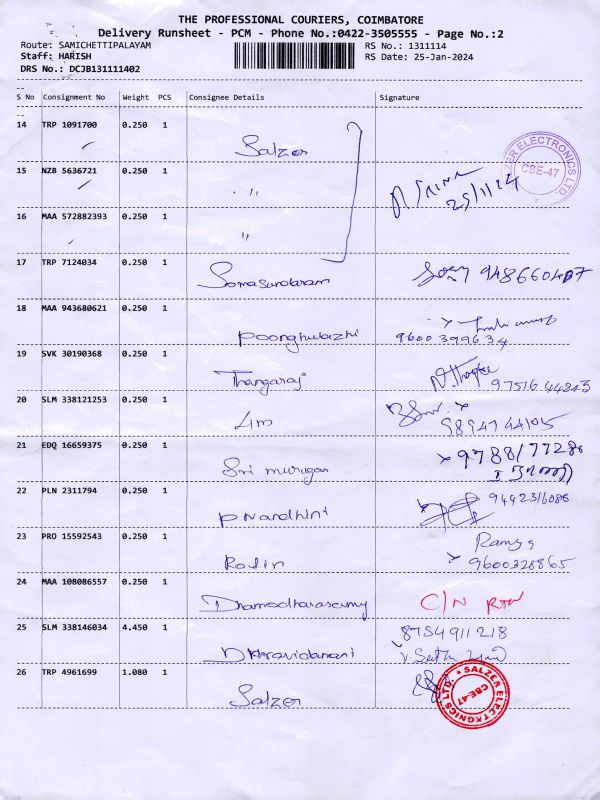 THE PROFESSIONAL COURIERS, COIMBATORE
Delivery Runsheet - PCM - Phone No.:0422-3505555 - Page No.:2
Route: SAMICHETTIPALAYAM
RS No.: 1311114
Staff: HARISH
RS Date: 25-Jan-2024
DRS No.: DCJB131111402
S No Consignment No Weight PCS Consignee Details Signature
14 TRP 1091700 0.250 1 Salzer
SALZER ELECTRONICS LTD. CBE-47
15 NZB 5636721 0.250 1 "
25/1/24
16 MAA 572882393 0.250 1 "
17 TRP 7124034 0.250 1 Somasundaram
18 MAA 943680621 0.250 1 Poonghulazhi
9600399634
19 SVK 30190368 0.250 1 Thangaraj
97516 44843
20 SLM 338121253 0.250 1
9894744105
21 EDQ 16659375 0.250 1 Sri murugan
22 PLN 2311794 0.250 1 P Nandhini
9442316086
23 PRO 15592543 0.250 1
9600328865
24 MAA 108086557 0.250 1 Dhamodharasamy C/N RTN
25 SLM 338146034 4.450 1
8754911218
26 TRP 4961699 1.080 1 Salzer
SALZER ELECTRONICS LTD. CBE-47